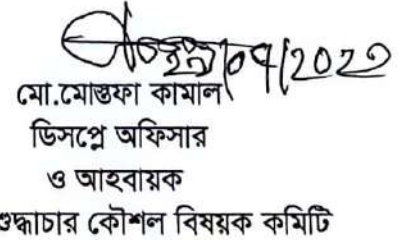 মো.মোস্তফা কামাল
ডিসপ্লে অফিসার
ও আহবায়ক
শুদ্ধাচার কৌশল বিষয়ক কমিটি